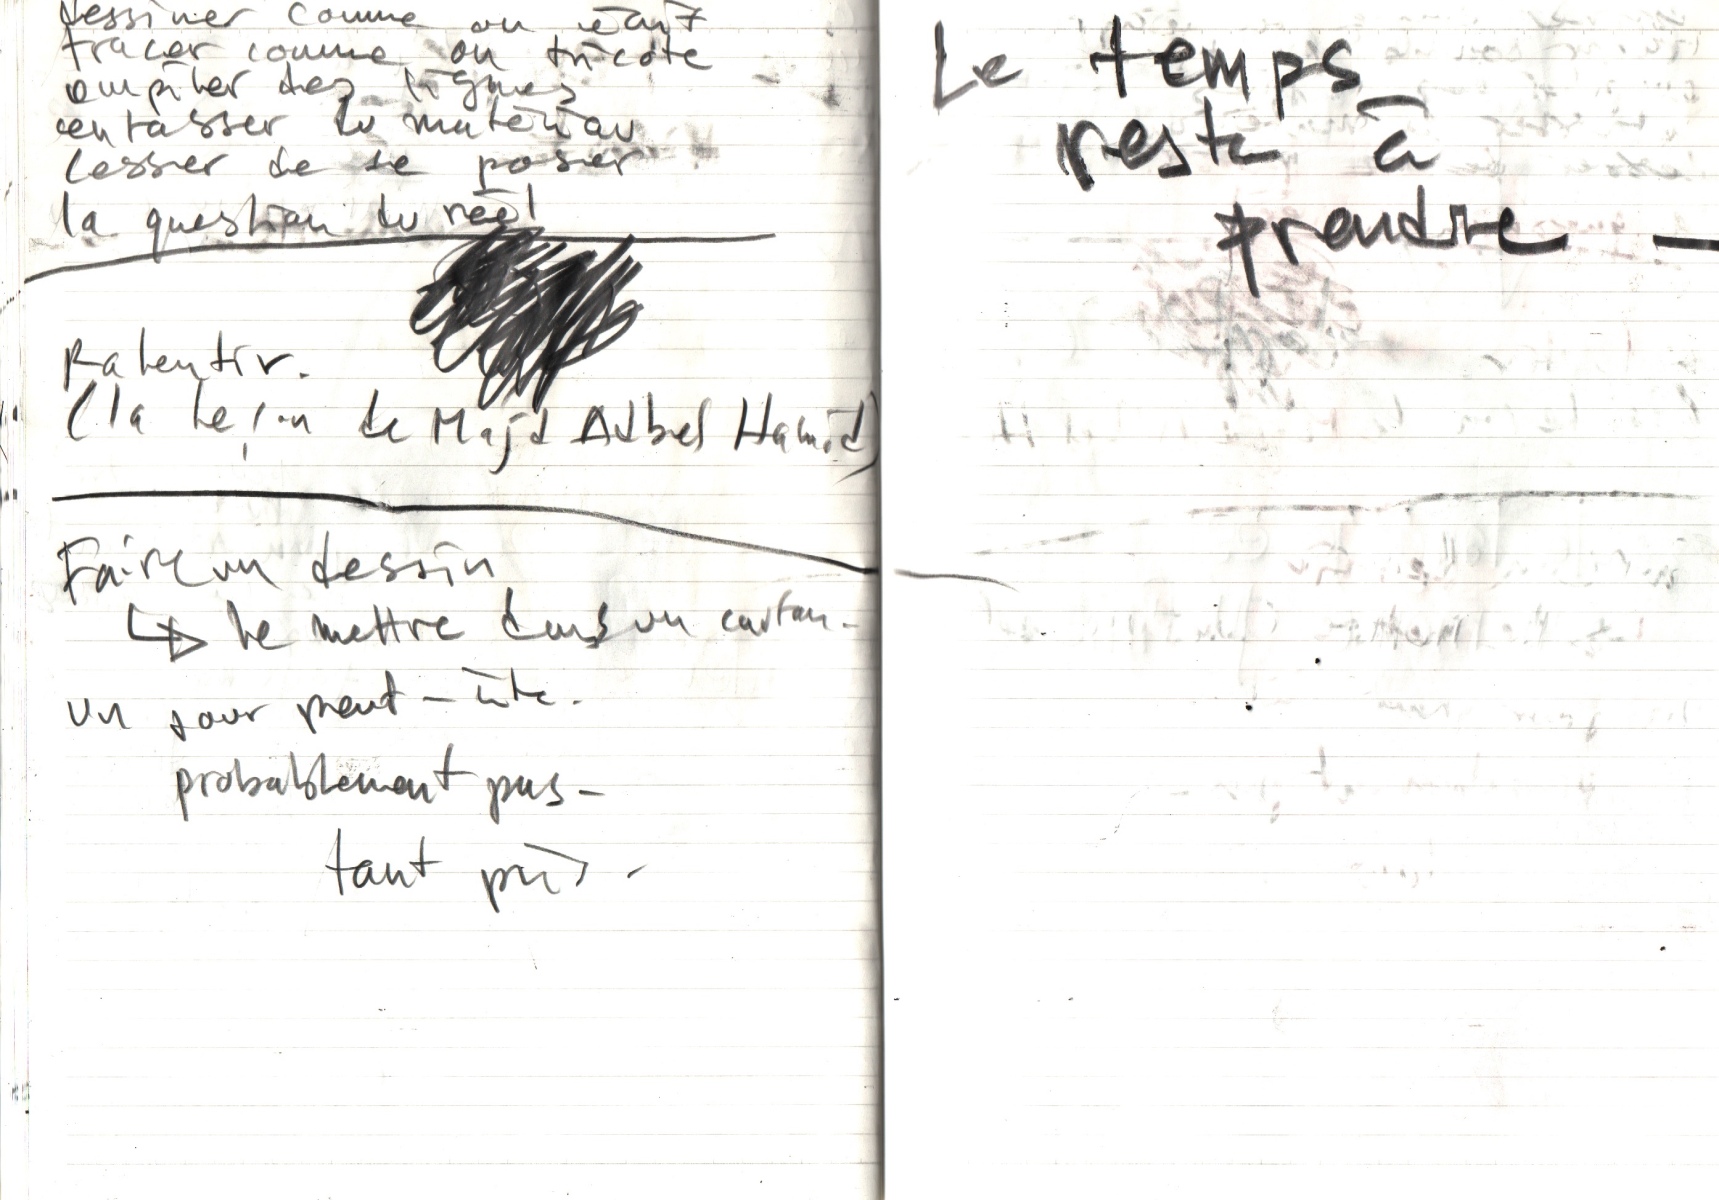 dessiner comme on écrit
tracer comme on tricote
empiler des lignes
entasser du matériau
cesser de se poser
la question du réel
Ralentir.
(la leçon de Majd Adbel Hamid)
Faire un dessin
↳ le mettre dans un carton.
un jour peut-être.
probablement pas -
tant pis.
Le temps
reste à
prendre -